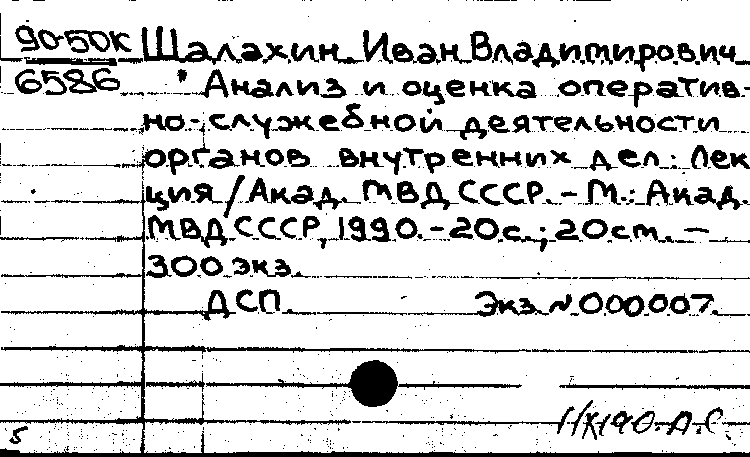 90-50К Шалахин Иван Владимирович
6586 Анализ и оценка оператив-
но-служебной деятельности
органов внутренних дел: Лек
ция / Акад. МВД СССР. - М.: Акад.
МВД СССР, 1990. - 20с.; 20см. -
300 экз.
ДСП. Экз. № 000007.
5